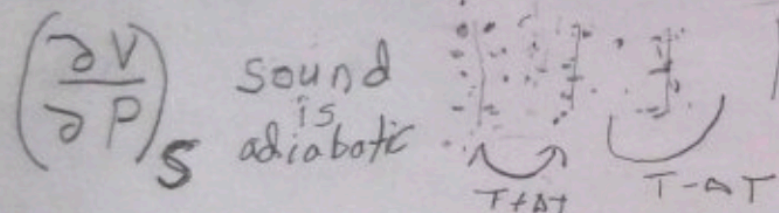 (∂V/∂P)_S
sound
is
adiabatic
T+Δt
T-ΔT